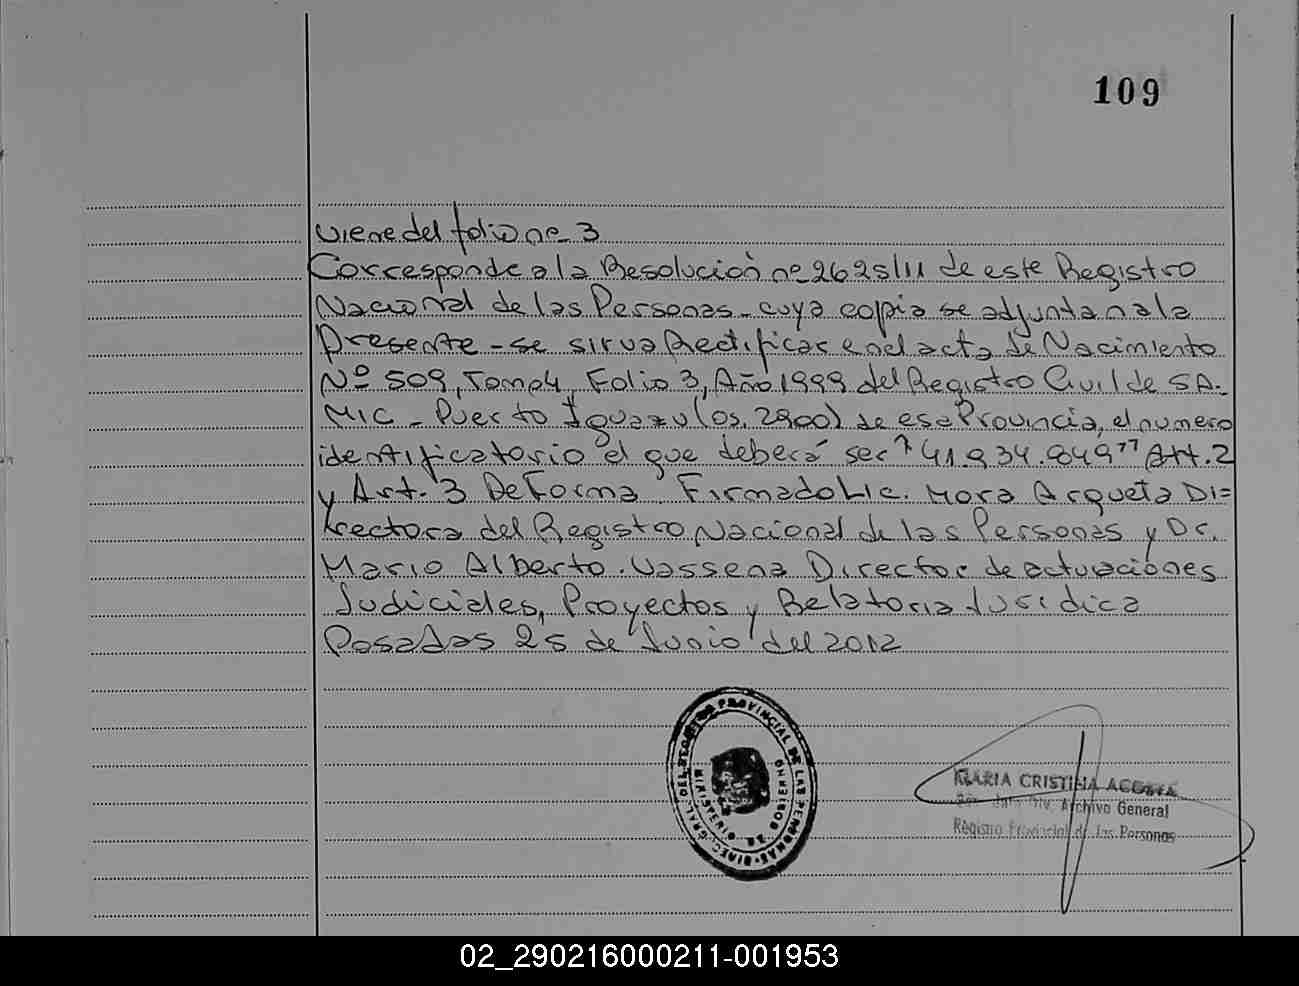 109
Viene del folio nº 3
Corresponde a la Resolución nº 2625/11 de este Registro
Nacional de las Personas - cuya copia se adjuntan a la
Presente - se sirva Rectificar en el acta de Nacimiento
Nº 509, Tomo 4, Folio 3, Año 1999 del Registro Civil de SA-
MIC - Puerto Iguazu (os. 2900) de esa Provincia, el numero
identificatorio el que deberá ser "41.934.849" Art. 2
y Art. 3 De Forma Firmado Lic. Mora Arqueta Di=
rectora del Registro Nacional de las Personas y Dr.
Mario Alberto Vassena Director de actuaciones
Judiciales, Proyectos y Relatoria Juridica
Posadas 25 de Junio del 2012
DIREC. GRAL. DEL REGISTRO PROVINCIAL DE LAS PERSONAS
MINISTERIO DE GOBIERNO
MARIA CRISTINA ACOSTA
Div. Archivo General
Registro Provincial de las Personas
02_290216000211-001953